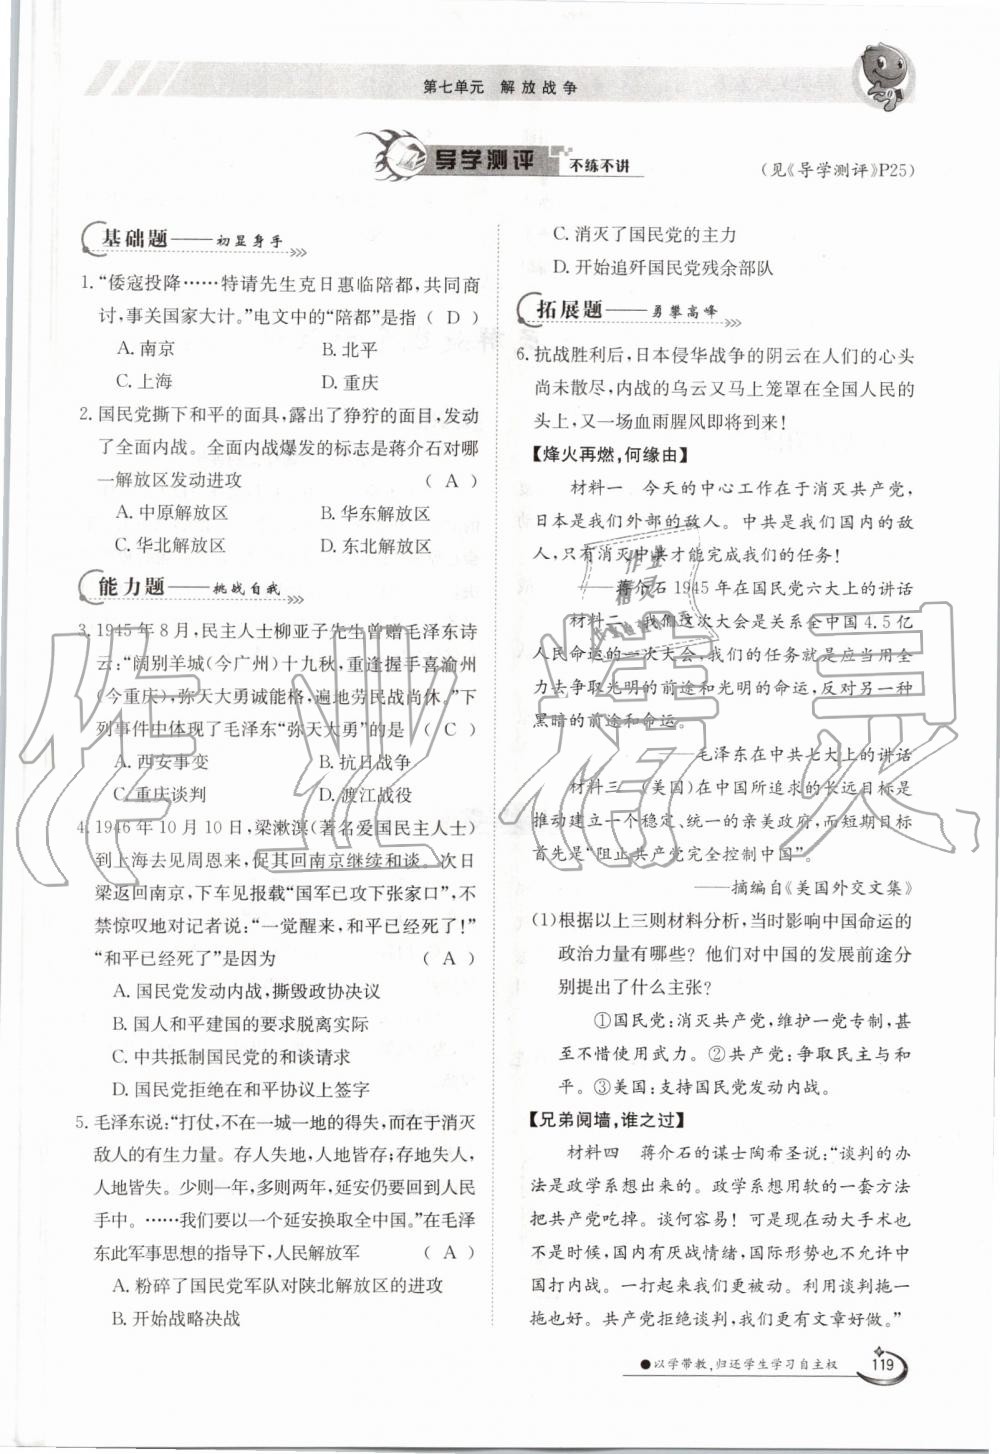 第七单元 解放战争
导学测评 不练不讲
(见《导学测评》P25)
基础题——初显身手
1. “倭寇投降……特请先生克日惠临陪都,共同商
讨,事关国家大计。”电文中的“陪都”是指 ( D )
A. 南京 B. 北平
C. 上海 D. 重庆
2. 国民党撕下和平的面具,露出了狰狞的面目,发动
了全面内战。全面内战爆发的标志是蒋介石对哪
一解放区发动进攻 ( A )
A. 中原解放区 B. 华东解放区
C. 华北解放区 D. 东北解放区
能力题——挑战自我
3. 1945年8月,民主人士柳亚子先生曾赠毛泽东诗
云:“阔别羊城(今广州)十九秋,重逢握手喜渝州
(今重庆),弥天大勇诚能格,遍地劳民战尚休。”下
列事件中体现了毛泽东“弥天大勇”的是 ( C )
A. 西安事变 B. 抗日战争
C. 重庆谈判 D. 渡江战役
4. 1946年10月10日,梁漱溟(著名爱国民主人士)
到上海去见周恩来,促其回南京继续和谈。次日
梁返回南京,下车见报载“国军已攻下张家口”,不
禁惊叹地对记者说:“一觉醒来,和平已经死了!”
“和平已经死了”是因为 ( A )
A. 国民党发动内战,撕毁政协决议
B. 国人和平建国的要求脱离实际
C. 中共抵制国民党的和谈请求
D. 国民党拒绝在和平协议上签字
5. 毛泽东说:“打仗,不在一城一地的得失,而在于消灭
敌人的有生力量。存人失地,人地皆存;存地失人,
人地皆失。少则一年,多则两年,延安仍要回到人民
手中。……我们要以一个延安换取全中国。”在毛泽
东此军事思想的指导下,人民解放军 ( A )
A. 粉碎了国民党军队对陕北解放区的进攻
B. 开始战略决战
C. 消灭了国民党的主力
D. 开始追歼国民党残余部队
拓展题——勇攀高峰
6. 抗战胜利后,日本侵华战争的阴云在人们的心头
尚未散尽,内战的乌云又马上笼罩在全国人民的
头上,又一场血雨腥风即将到来!
【烽火再燃,何缘由】
材料一 今天的中心工作在于消灭共产党,
日本是我们外部的敌人。中共是我们国内的敌
人,只有消灭中共才能完成我们的任务!
——蒋介石1945年在国民党六大上的讲话
材料二 我们这次大会是关系全中国4.5亿
人民命运的一次大会,我们的任务就是应当用全
力去争取光明的前途和光明的命运,反对另一种
黑暗的前途和命运。
——毛泽东在中共七大上的讲话
材料三 (美国)在中国所追求的长远目标是
推动建立一个稳定、统一的亲美政府,而短期目标
首先是“阻止共产党完全控制中国”。
——摘编自《美国外交文集》
(1)根据以上三则材料分析,当时影响中国命运的
政治力量有哪些? 他们对中国的发展前途分
别提出了什么主张?
①国民党:消灭共产党,维护一党专制,甚
至不惜使用武力。②共产党:争取民主与和
平。③美国:支持国民党发动内战。
【兄弟阋墙,谁之过】
材料四 蒋介石的谋士陶希圣说:“谈判的办
法是政学系想出来的。政学系想用软的一套方法
把共产党吃掉。谈何容易! 可是现在动大手术也
不是时候,国内有厌战情绪,国际形势也不允许中
国打内战。一打起来我们更被动。利用谈判拖一
拖也好。共产党拒绝谈判,我们更有文章好做。”
●以学带教,归还学生学习自主权
119
作业精灵